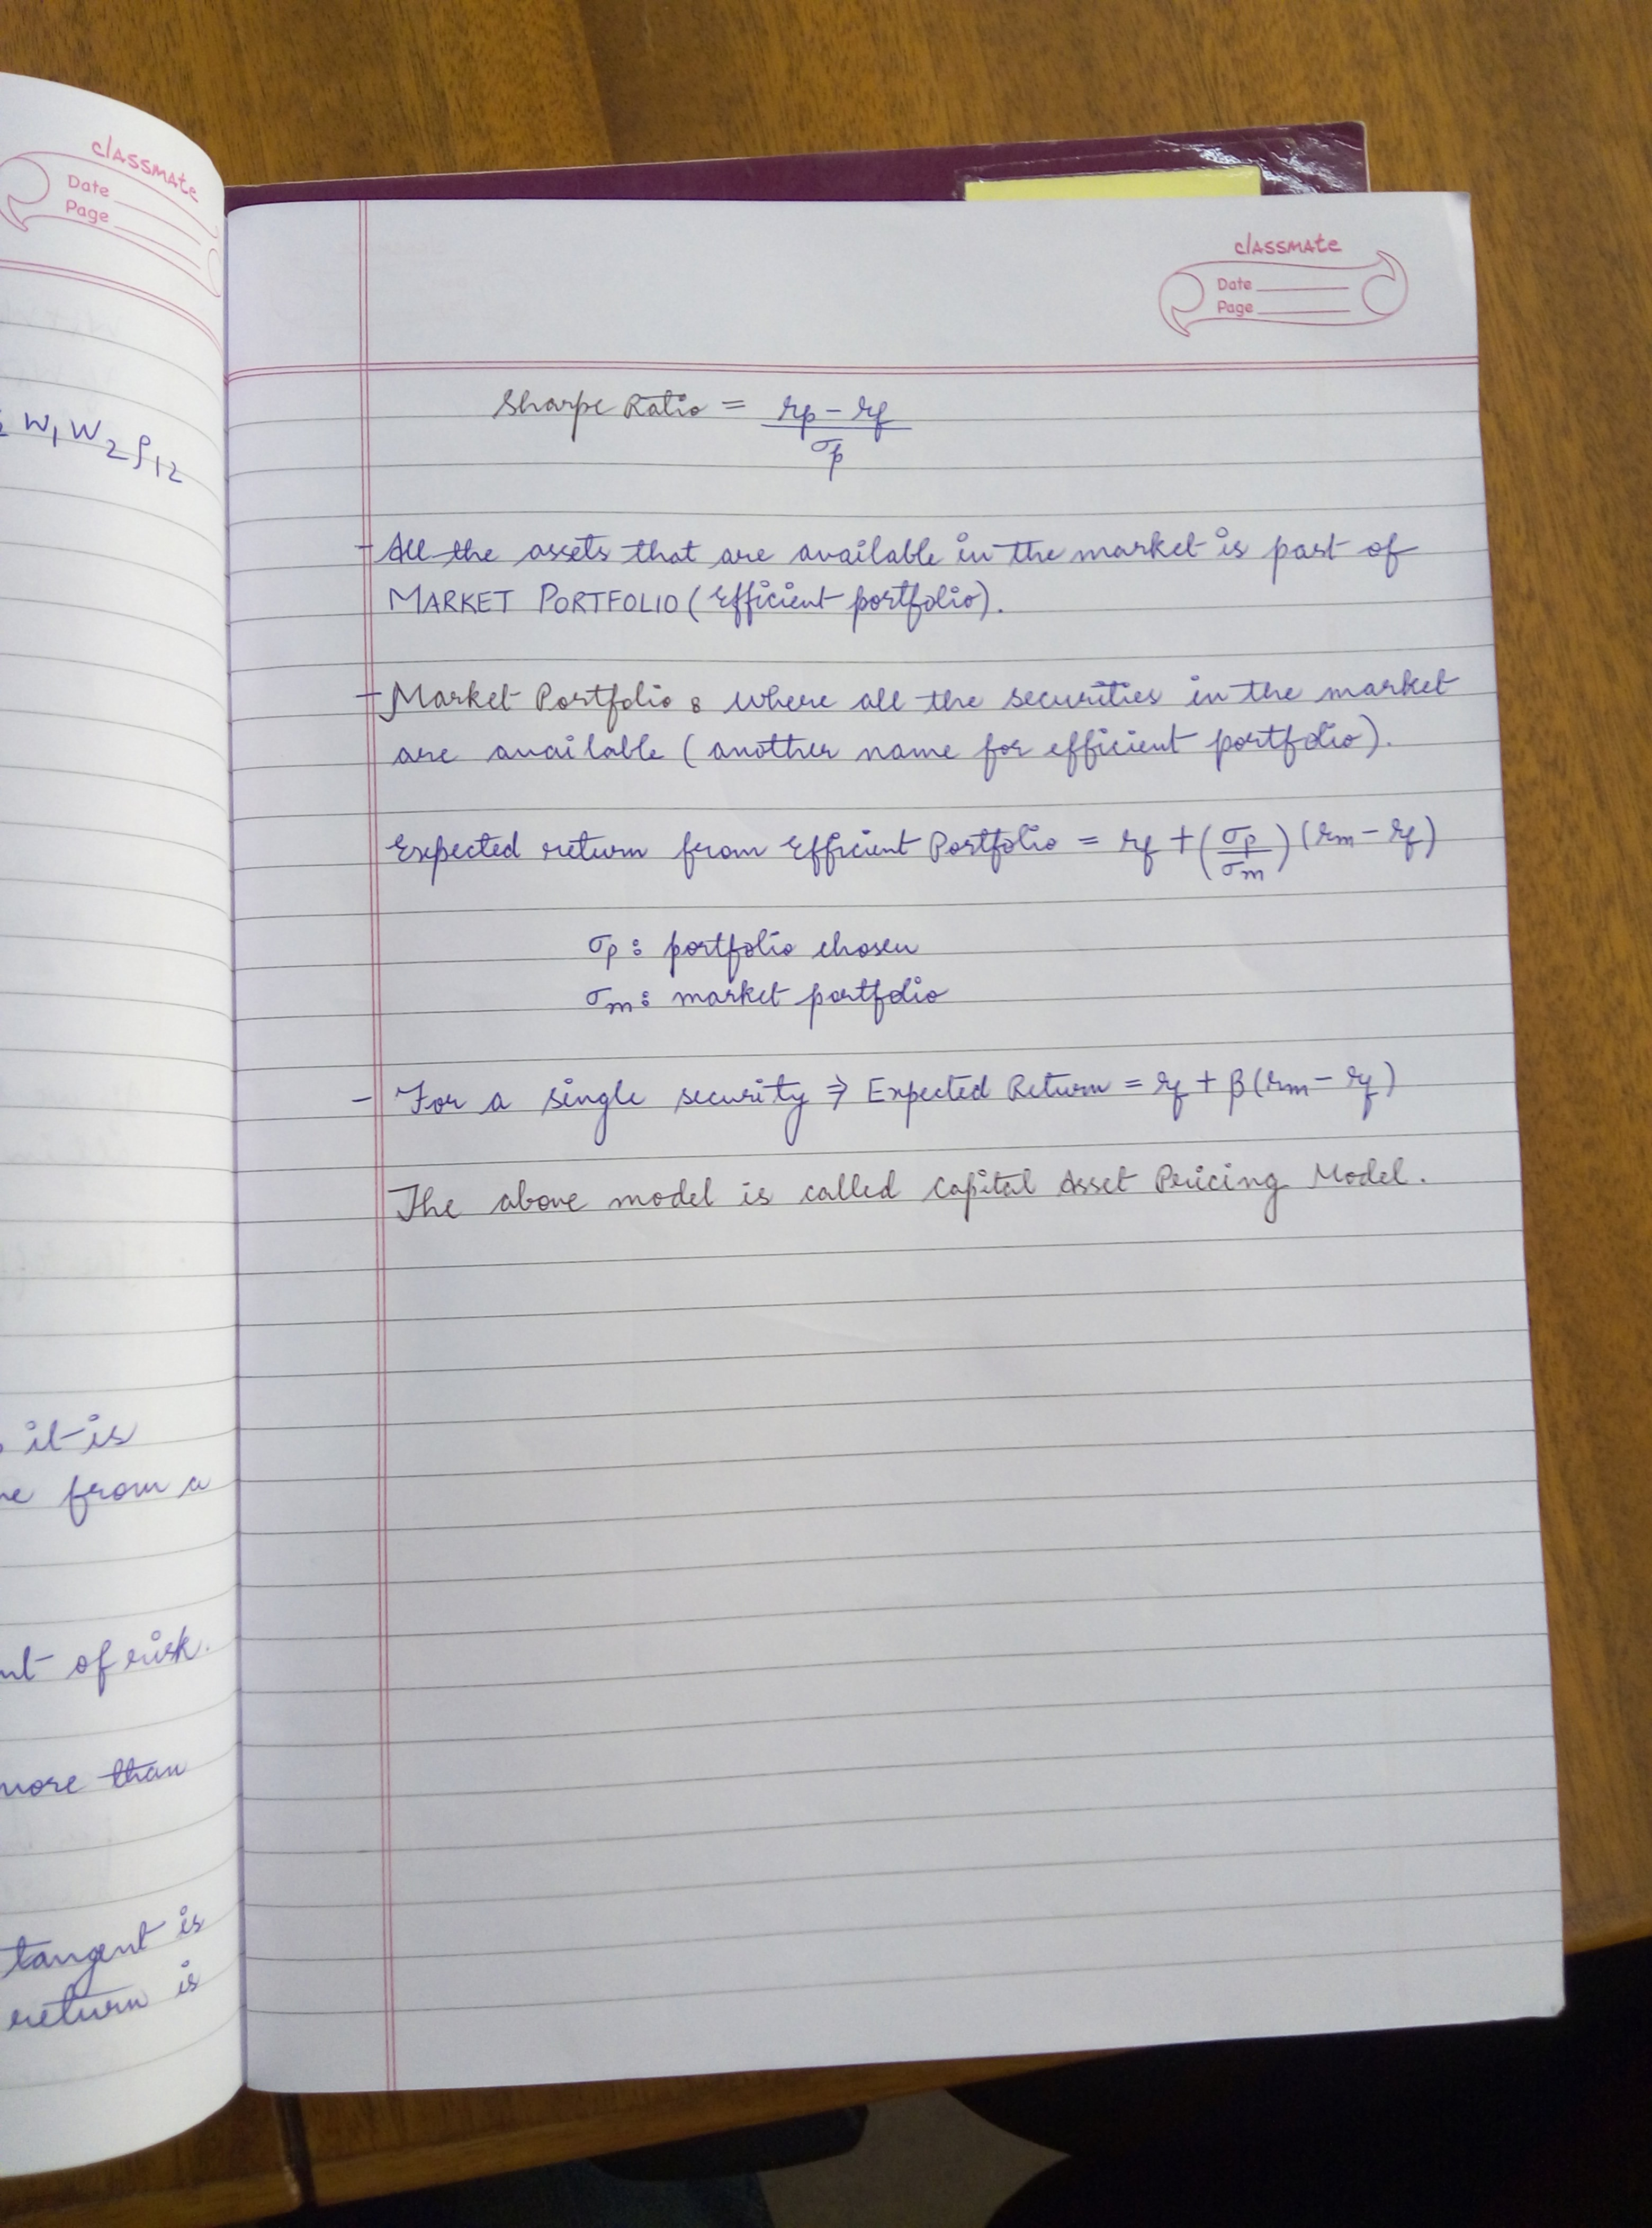 classmate
Date
Page
W₁W₂ρ₁₂
it is
from a
of risk.
more than
tangent is
return is
classmate
Date
Page
Sharpe Ratio = (rp - rf) / σp
- All the assets that are available in the market is part of
MARKET PORTFOLIO (Efficient portfolio).
- Market Portfolio : Where all the securities in the market
are available (another name for efficient portfolio).
Expected return from Efficient Portfolio = rf + (σp/σm) (rm - rf)
σp : portfolio chosen
σm : market portfolio
- For a single security ⇒ Expected Return = rf + β(rm - rf)
The above model is called Capital Asset Pricing Model.